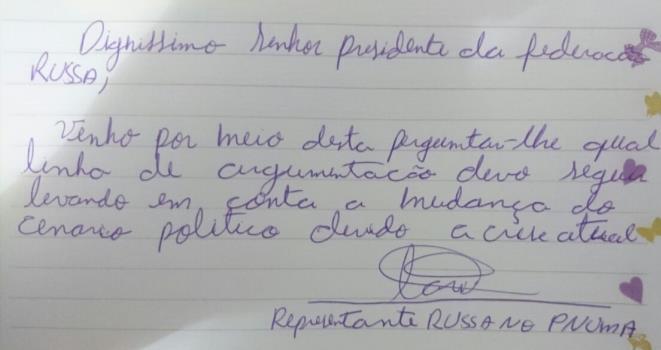 Dignissimo senhor presidente da federacao
RUSSA,
Venho por meio desta perguntar-lhe qual
linha de argumentacão devo seguir
levando em conta a mudança do
cenario politico devido a crise atual
Representante RUSSO NO PNUMA